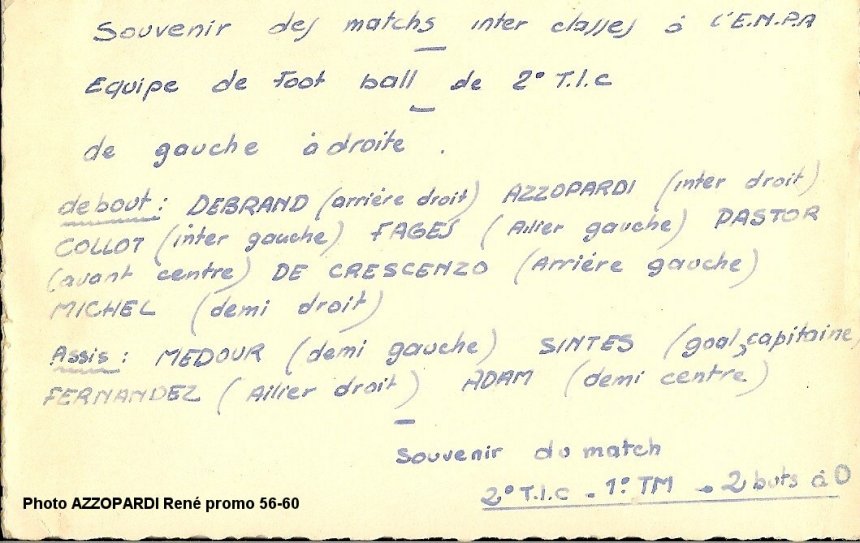 Souvenir des matchs inter classes à l'E.N.P.A
Equipe de Foot ball de 2° T.I.C
de gauche à droite .
debout : DEBRAND (arrière droit) AZZOPARDI (inter droit)
COLLOT (inter gauche) FAGES (Ailier gauche) PASTOR
(avant centre) DE CRESCENZO (Arrière gauche)
MICHEL (demi droit)
Assis : MEDOUR (demi gauche) SINTES (goal, capitaine)
FERNANDEZ (Ailier droit) ADAM (demi centre)
Souvenir du match
2° T.I.C - 1° TM - 2 buts à 0
Photo AZZOPARDI René promo 56-60